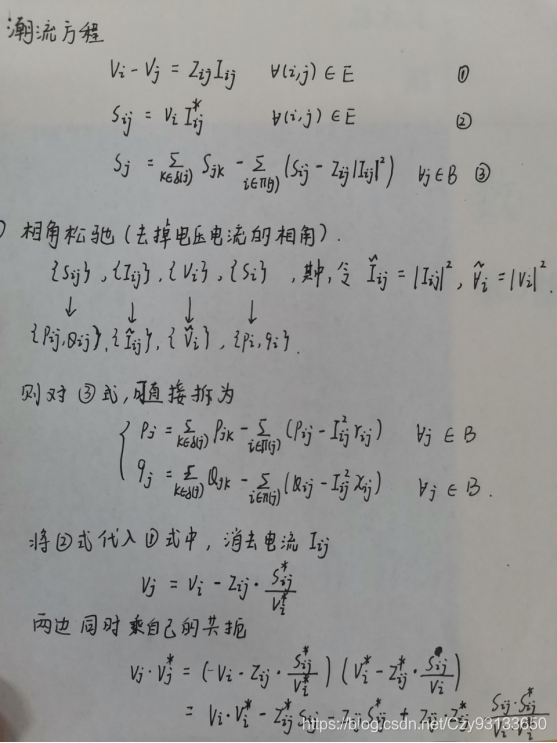 潮流方程
Vi - Vj = Zij Iij ∀(i,j) ∈ E ①
Sij = Vi Iij* ∀(i,j) ∈ E ②
Sj = Σ_{k∈δ(j)} Sjk - Σ_{i∈π(j)} (Sij - Zij|Iij|²) ∀j∈B ③
) 相角松弛(去掉电压电流的相角).
{Sij}, {Iij}, {Vi}, {Si} ,其中,令 Ĩij = |Iij|², Ṽi = |Vi|².
↓ ↓ ↓ ↓
{Pij,Qij}, {Ĩij}, {Ṽi}, {pi,qi}.
则对③式,可直接拆为
{ Pj = Σ_{k∈δ(j)} Pjk - Σ_{i∈π(j)} (Pij - Iij² rij) ∀j ∈ B
qj = Σ_{k∈δ(j)} Qjk - Σ_{i∈π(j)} (Qij - Iij² xij) ∀j ∈ B.
将②式代入①式中,消去电流 Iij
Vj = Vi - Zij · Sij*/Vi*
两边同时乘自己的共扼
Vj·Vj* = (Vi - Zij · Sij*/Vi*) (Vi* - Zij* · Sij/Vi)
= Vi·Vi* - Zij* Sij - Zij Sij* + Zij Zij* Sij·Sij*/Vi·Vi*
https://blog.csdn.net/Czy93133650